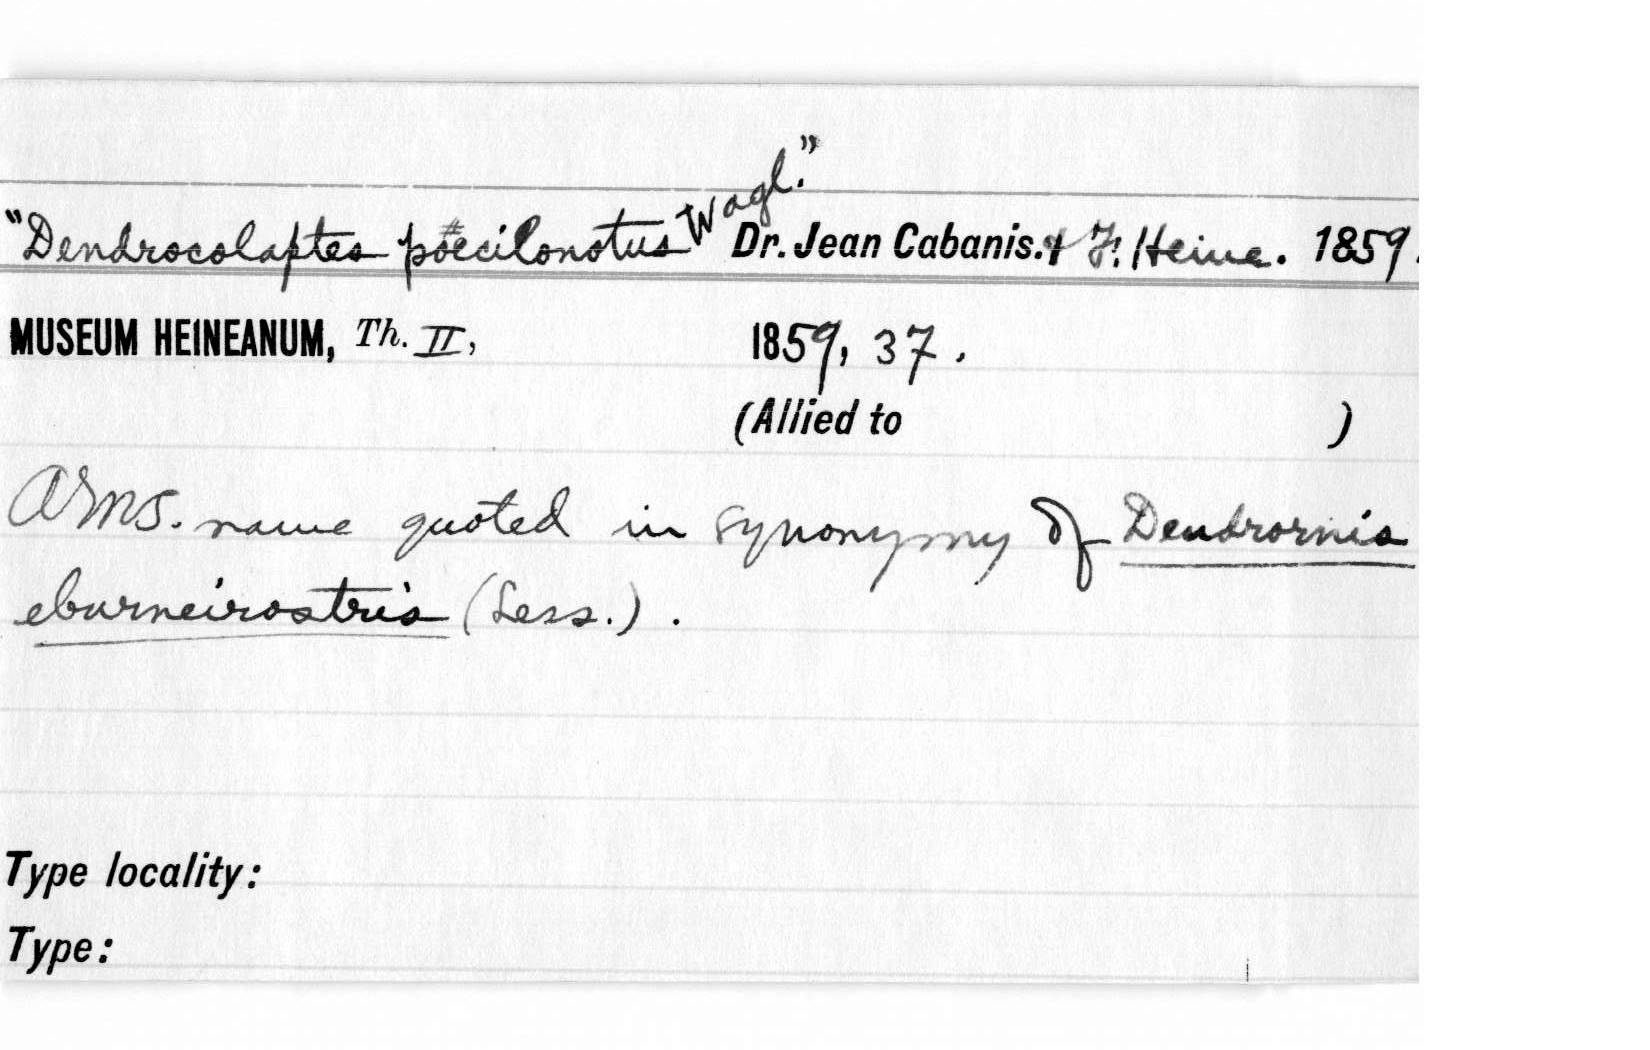 "Dendrocolaptes pœcilonotus Wagl." Dr. Jean Cabanis. & F. Heine. 1859.
MUSEUM HEINEANUM, Th. II, 1859, 37.
(Allied to )
A MS. name quoted in synonymy of Dendrornis
eburneirostris (Less.).
Type locality:
Type: